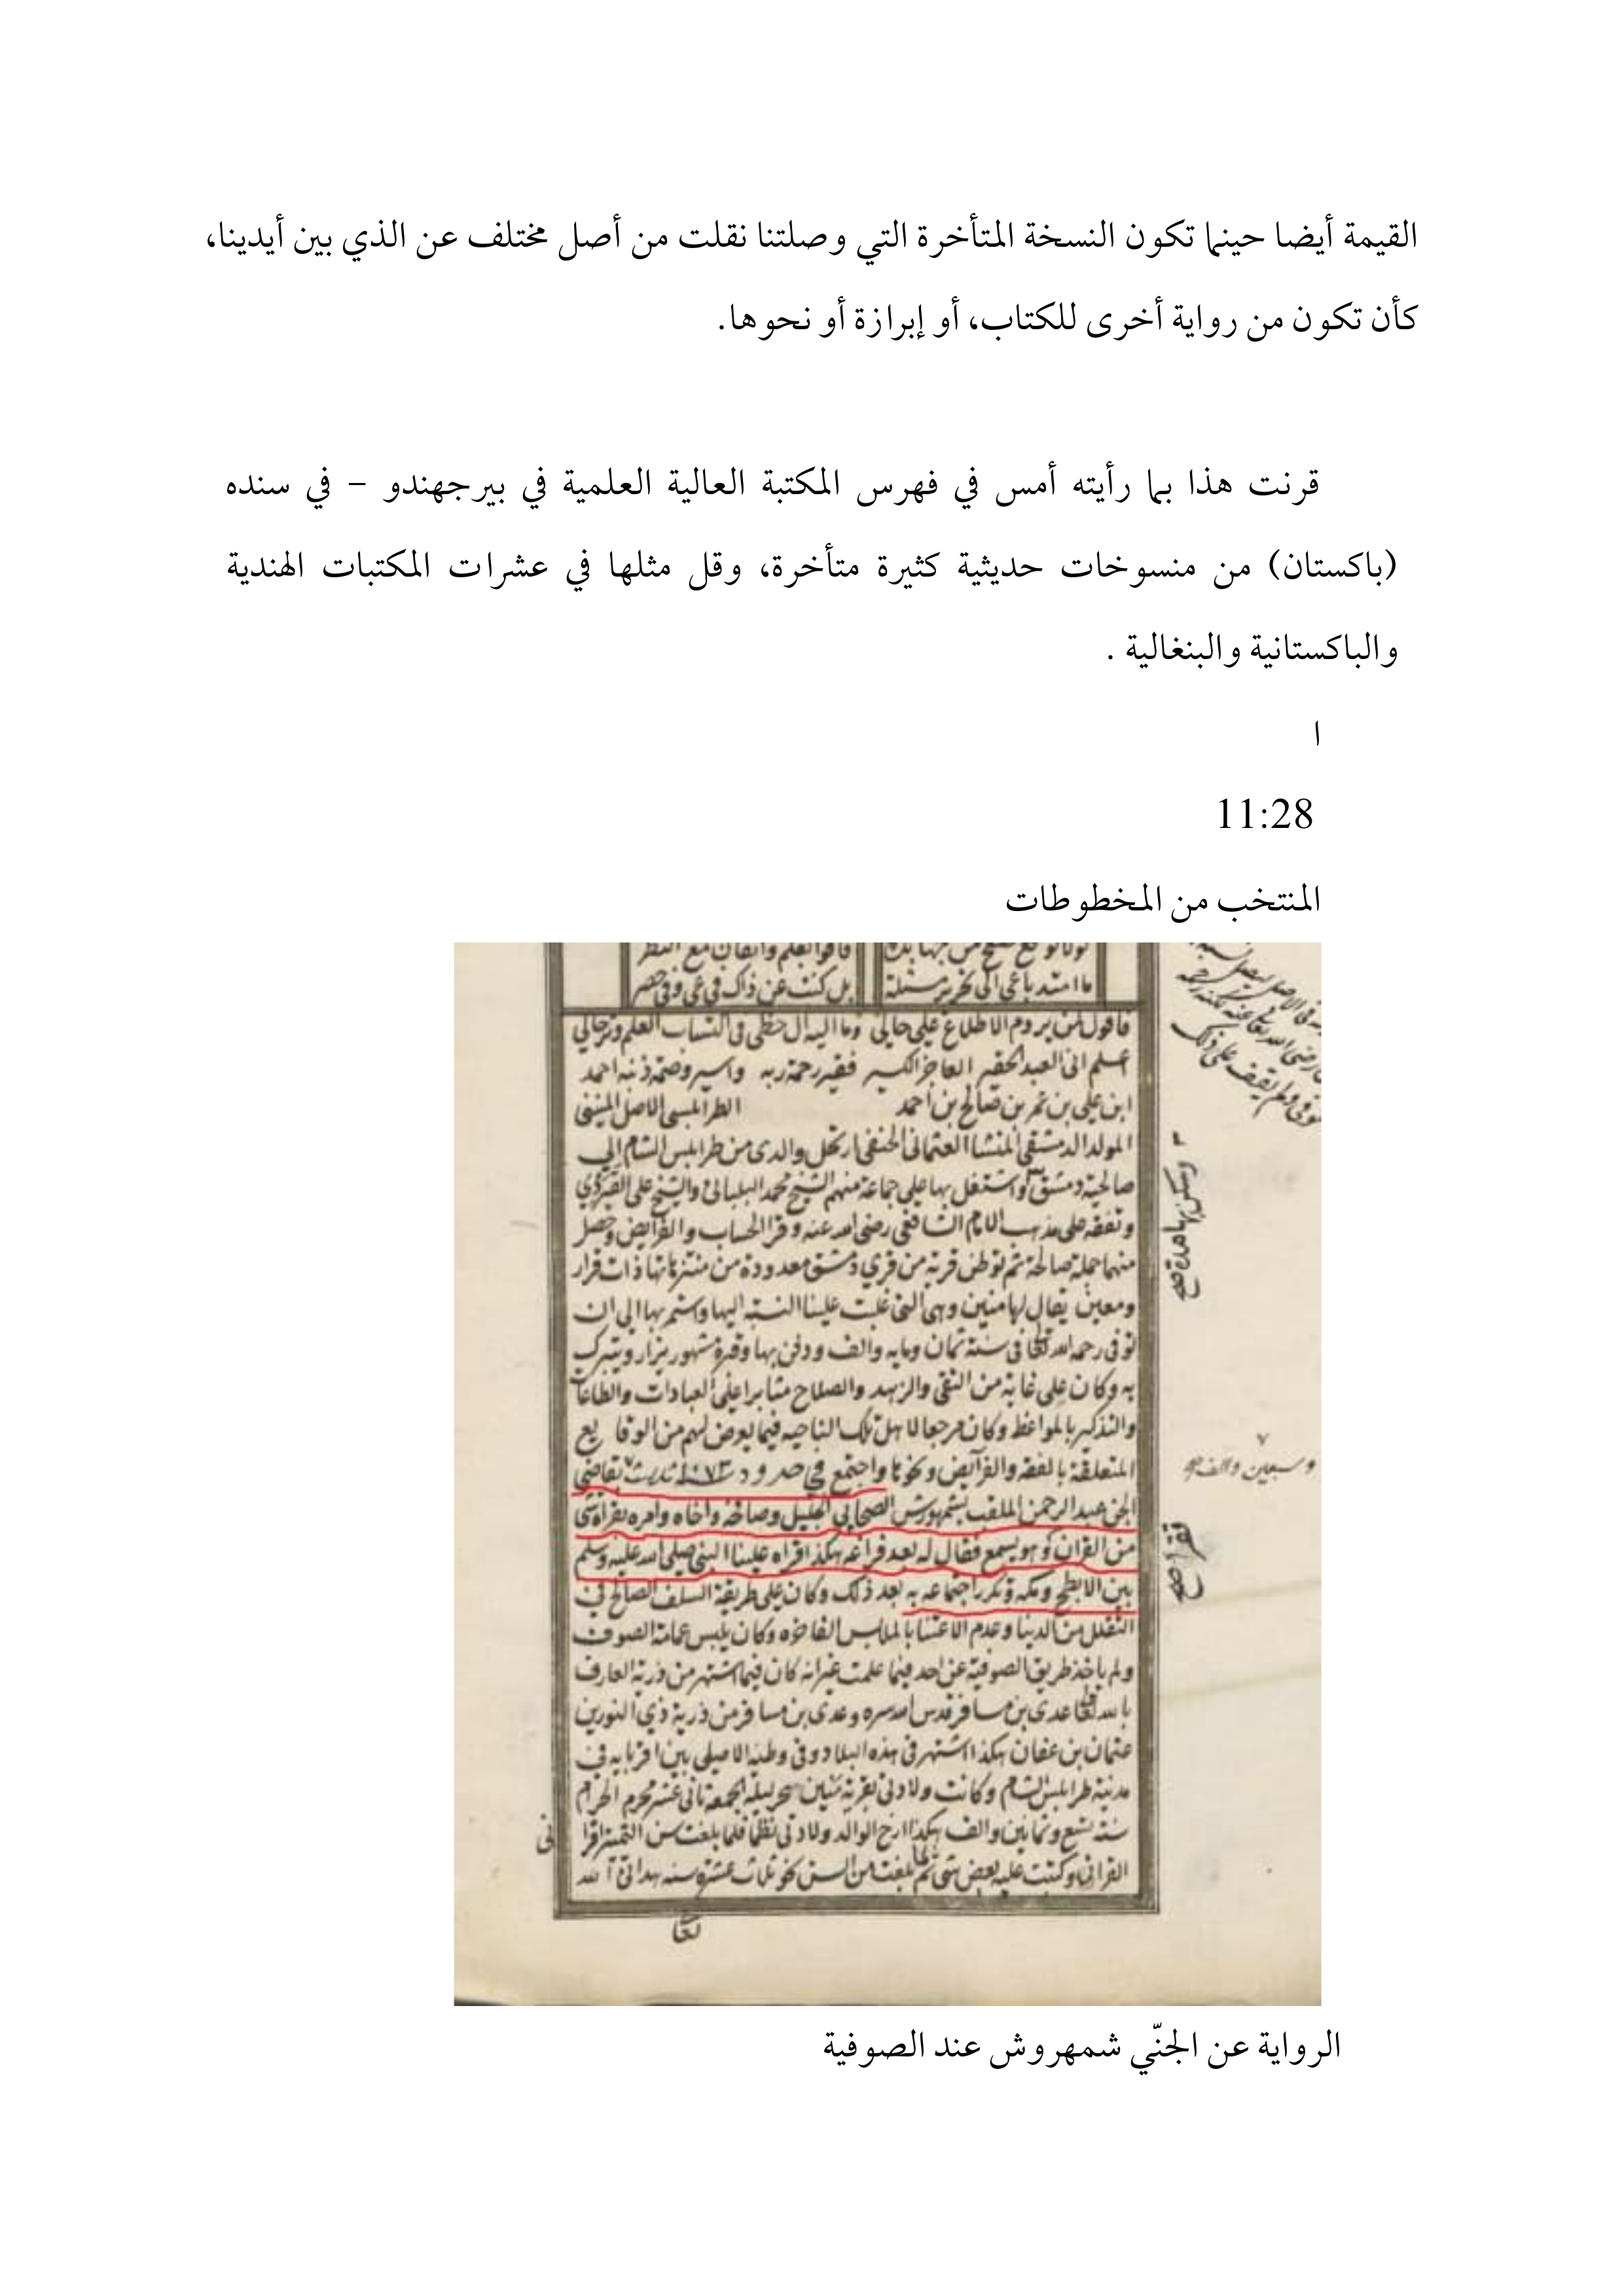 القيمة أيضا حينما تكون النسخة المتأخرة التي وصلتنا نقلت من أصل مختلف عن الذي بين أيدينا،
كأن تكون من رواية أخرى للكتاب، أو إبرازة أو نحوها.
قرنت هذا بما رأيته أمس في فهرس المكتبة العالية العلمية في بيرجهندو – في سنده
(باكستان) من منسوخات حديثية كثيرة متأخرة، وقل مثلها في عشرات المكتبات الهندية
والباكستانية والبنغالية .
ا
11:28
المنتخب من المخطوطات
بل كنت عن ذاك في عي وفي حصر
ما امتد باعي الى تحرير مسئلة
فاقول لمن يروم الاطلاع علي حالي وما اليه ال حظي في اكتساب العلم وترحالي
اعلم اني العبد الحقير العاجز الكسير فقير رحمة ربه واسير وصمة ذنبه احمد
ابن علي بن عمر بن صالح بن احمد الطرابلسي الاصل المنيني
المولد الدمشقي المنشا العثماني الحنفي ارتحل والدي من طرابلس الشام الي
صالحية دمشق واشتغل بها علي جماعة منهم الشيخ محمد البلباني والشيخ علي القبردي
وتفقه على مذهب الامام الشافعي رضي الله عنه وقرا الحساب والفرايض وحصل
منهما جملة صالحة ثم توطن قرية من قري دمشق معدودة من منتزهاتها ذات قرار
ومعين يقال لها منين وهي التي غلبت علينا النسبة اليها واستمر بها الي ان
توفي رحمه الله تعالى في سنة ثمان ومايه والف ودفن بها وقبره مشهور يزار ويتبرك
به وكان علي غاية من التقي والزهد والصلاح مثابرا علي العبادات والطاعات
والتذكير بالمواعظ وكان مرجعا لاهل تلك الناحيه فيما يعرض لهم من الوقايع
المتعلقة بالفقه والفرايض ونحوها واجتمع في حدود ١٠٧٣ ثلاث بقاضي
الجن عبد الرحمن الملقب بشمهورش الصحابي الجليل وصافحه واخاه وامره بقراة شي
من القران وهو يسمع فقال له بعد فراغه هكذا اقراه علينا النبي صلي الله عليه وسلم
بين الابطح ومكه وتكرر اجتماعه به بعد ذلك وكان علي طريقة السلف الصالح في
التقلل من الدنيا وعدم الاعتنا بالملابس الفاخره وكان يلبس عمامة الصوف
ولم ياخذ طريق الصوفية عن احد فيما علمت غير انه كان فيما اشتهر من ذرية العارف
بالله تعالى عدي بن مسافر قدس الله سره وعدي بن مسافر من ذرية ذي النورين
عثمان بن عفان هكذا اشتهر في هذه البلاد وفي وطنه الاصلي بين اقربايه في
مدينة طرابلس الشام وكانت ولادتي بقرية منين سحر ليلة الجمعة ثاني عشر محرم الحرام
سنة تسع وثمانين والف هكذا ارخ الوالد ولادتي نظما فلما بلغت سن التمييز اقرا
القران وكتبت عليه بعض شي ثم لما بلغت من السن نحو ثلاث عشرة سنه هداني الله
ني
وسكن بها مدة صح
وسبعين والف
تعا
الرواية عن الجنّي شمهروش عند الصوفية